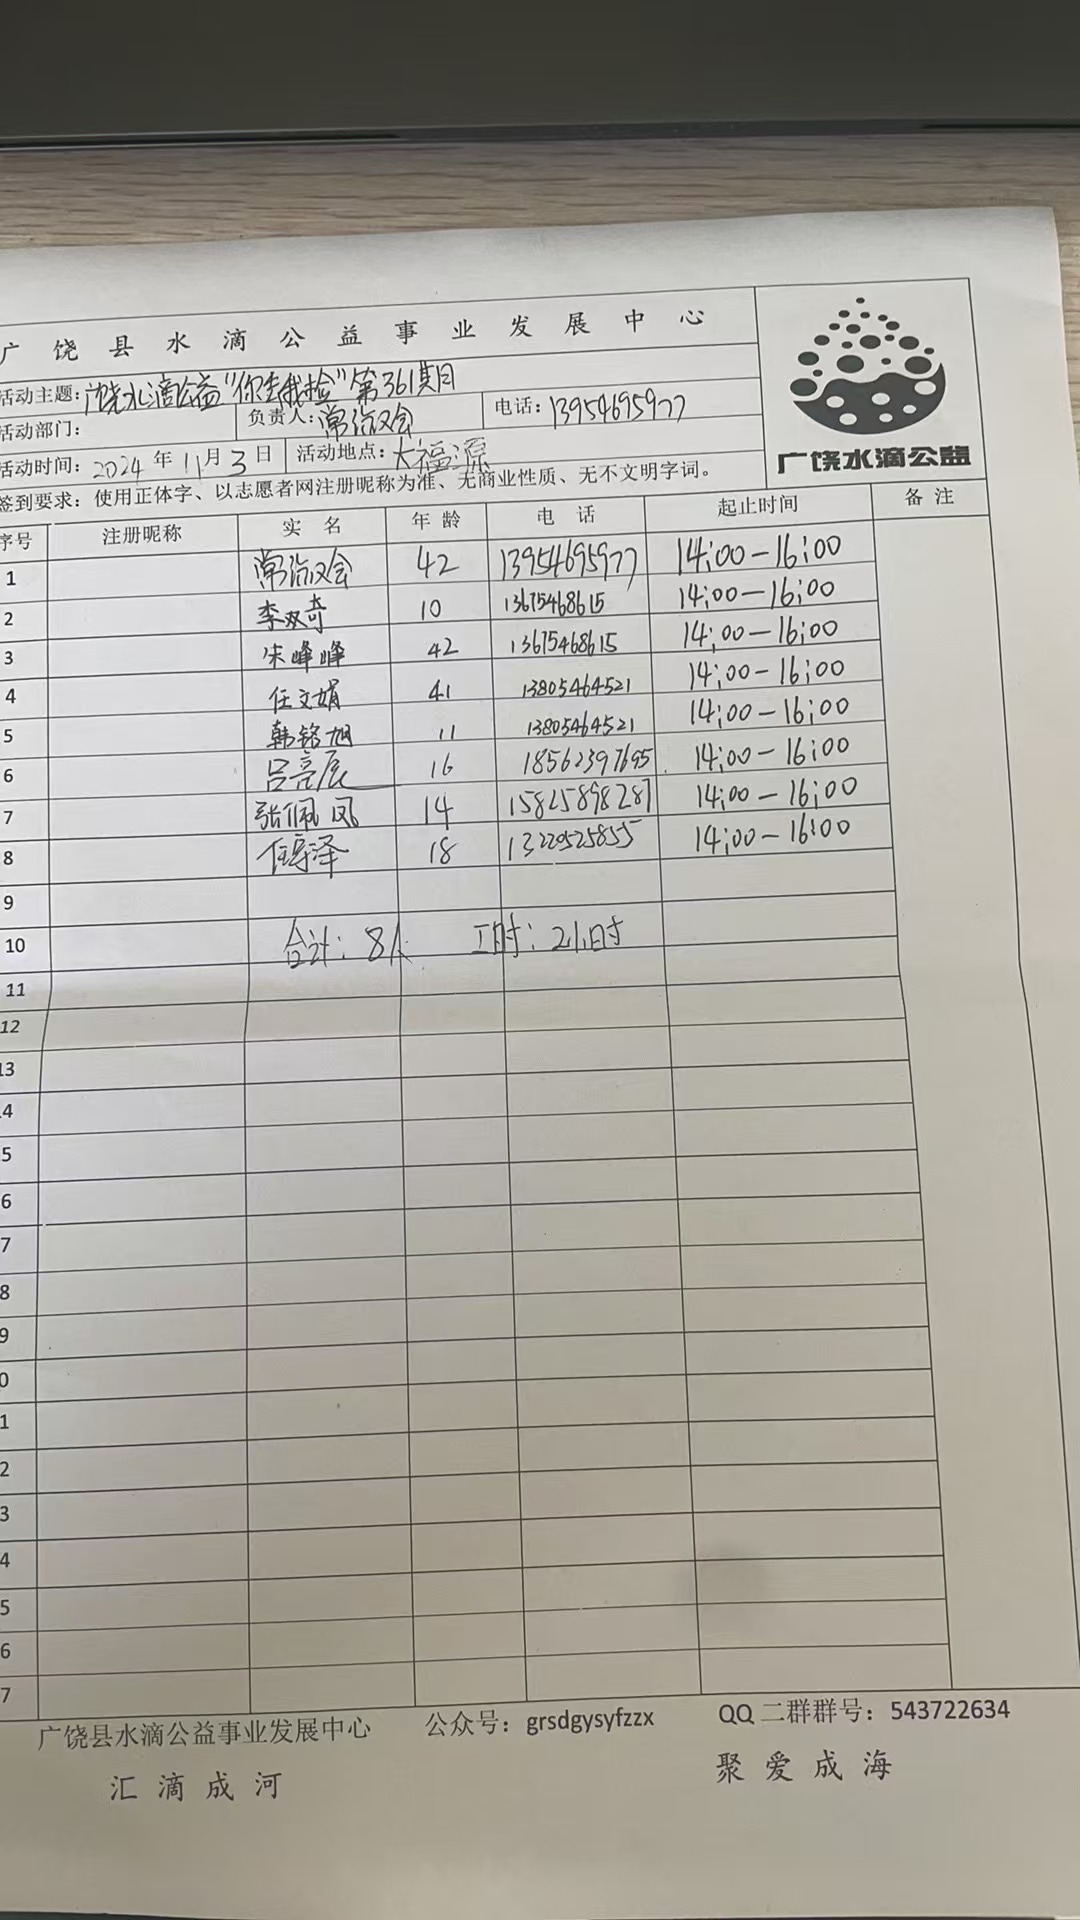 广饶县水滴公益事业发展中心
活动主题：广饶水滴公益“你丢我捡”第361期
广饶水滴公益
活动部门： 负责人：常治汉会 电话：13954695977
活动时间：2024年11月3日 活动地点：大福源
签到要求：使用正体字、以志愿者网注册昵称为准、无商业性质、无不文明字词。
序号 注册昵称 实 名 年 龄 电 话 起止时间 备 注
1 42 13954695977 14:00-16:00
2 李双奇 10 13675468615 14:00-16:00
3 宋峰峰 42 13675468615 14:00-16:00
4 任文娟 41 13805464521 14:00-16:00
5 韩铭旭 11 13805464521 14:00-16:00
6 吕亮辰 16 18562397695 14:00-16:00
7 张佩凤 14 15825898287 14:00-16:00
8 18 13220525855 14:00-16:00
9
10 合计：8人 工时：2小时
11
12
13
4
5
6
7
8
9
0
1
2
3
4
5
6
7
广饶县水滴公益事业发展中心 公众号：grsdgysyfzzx QQ二群群号：543722634
汇滴成河 聚爱成海